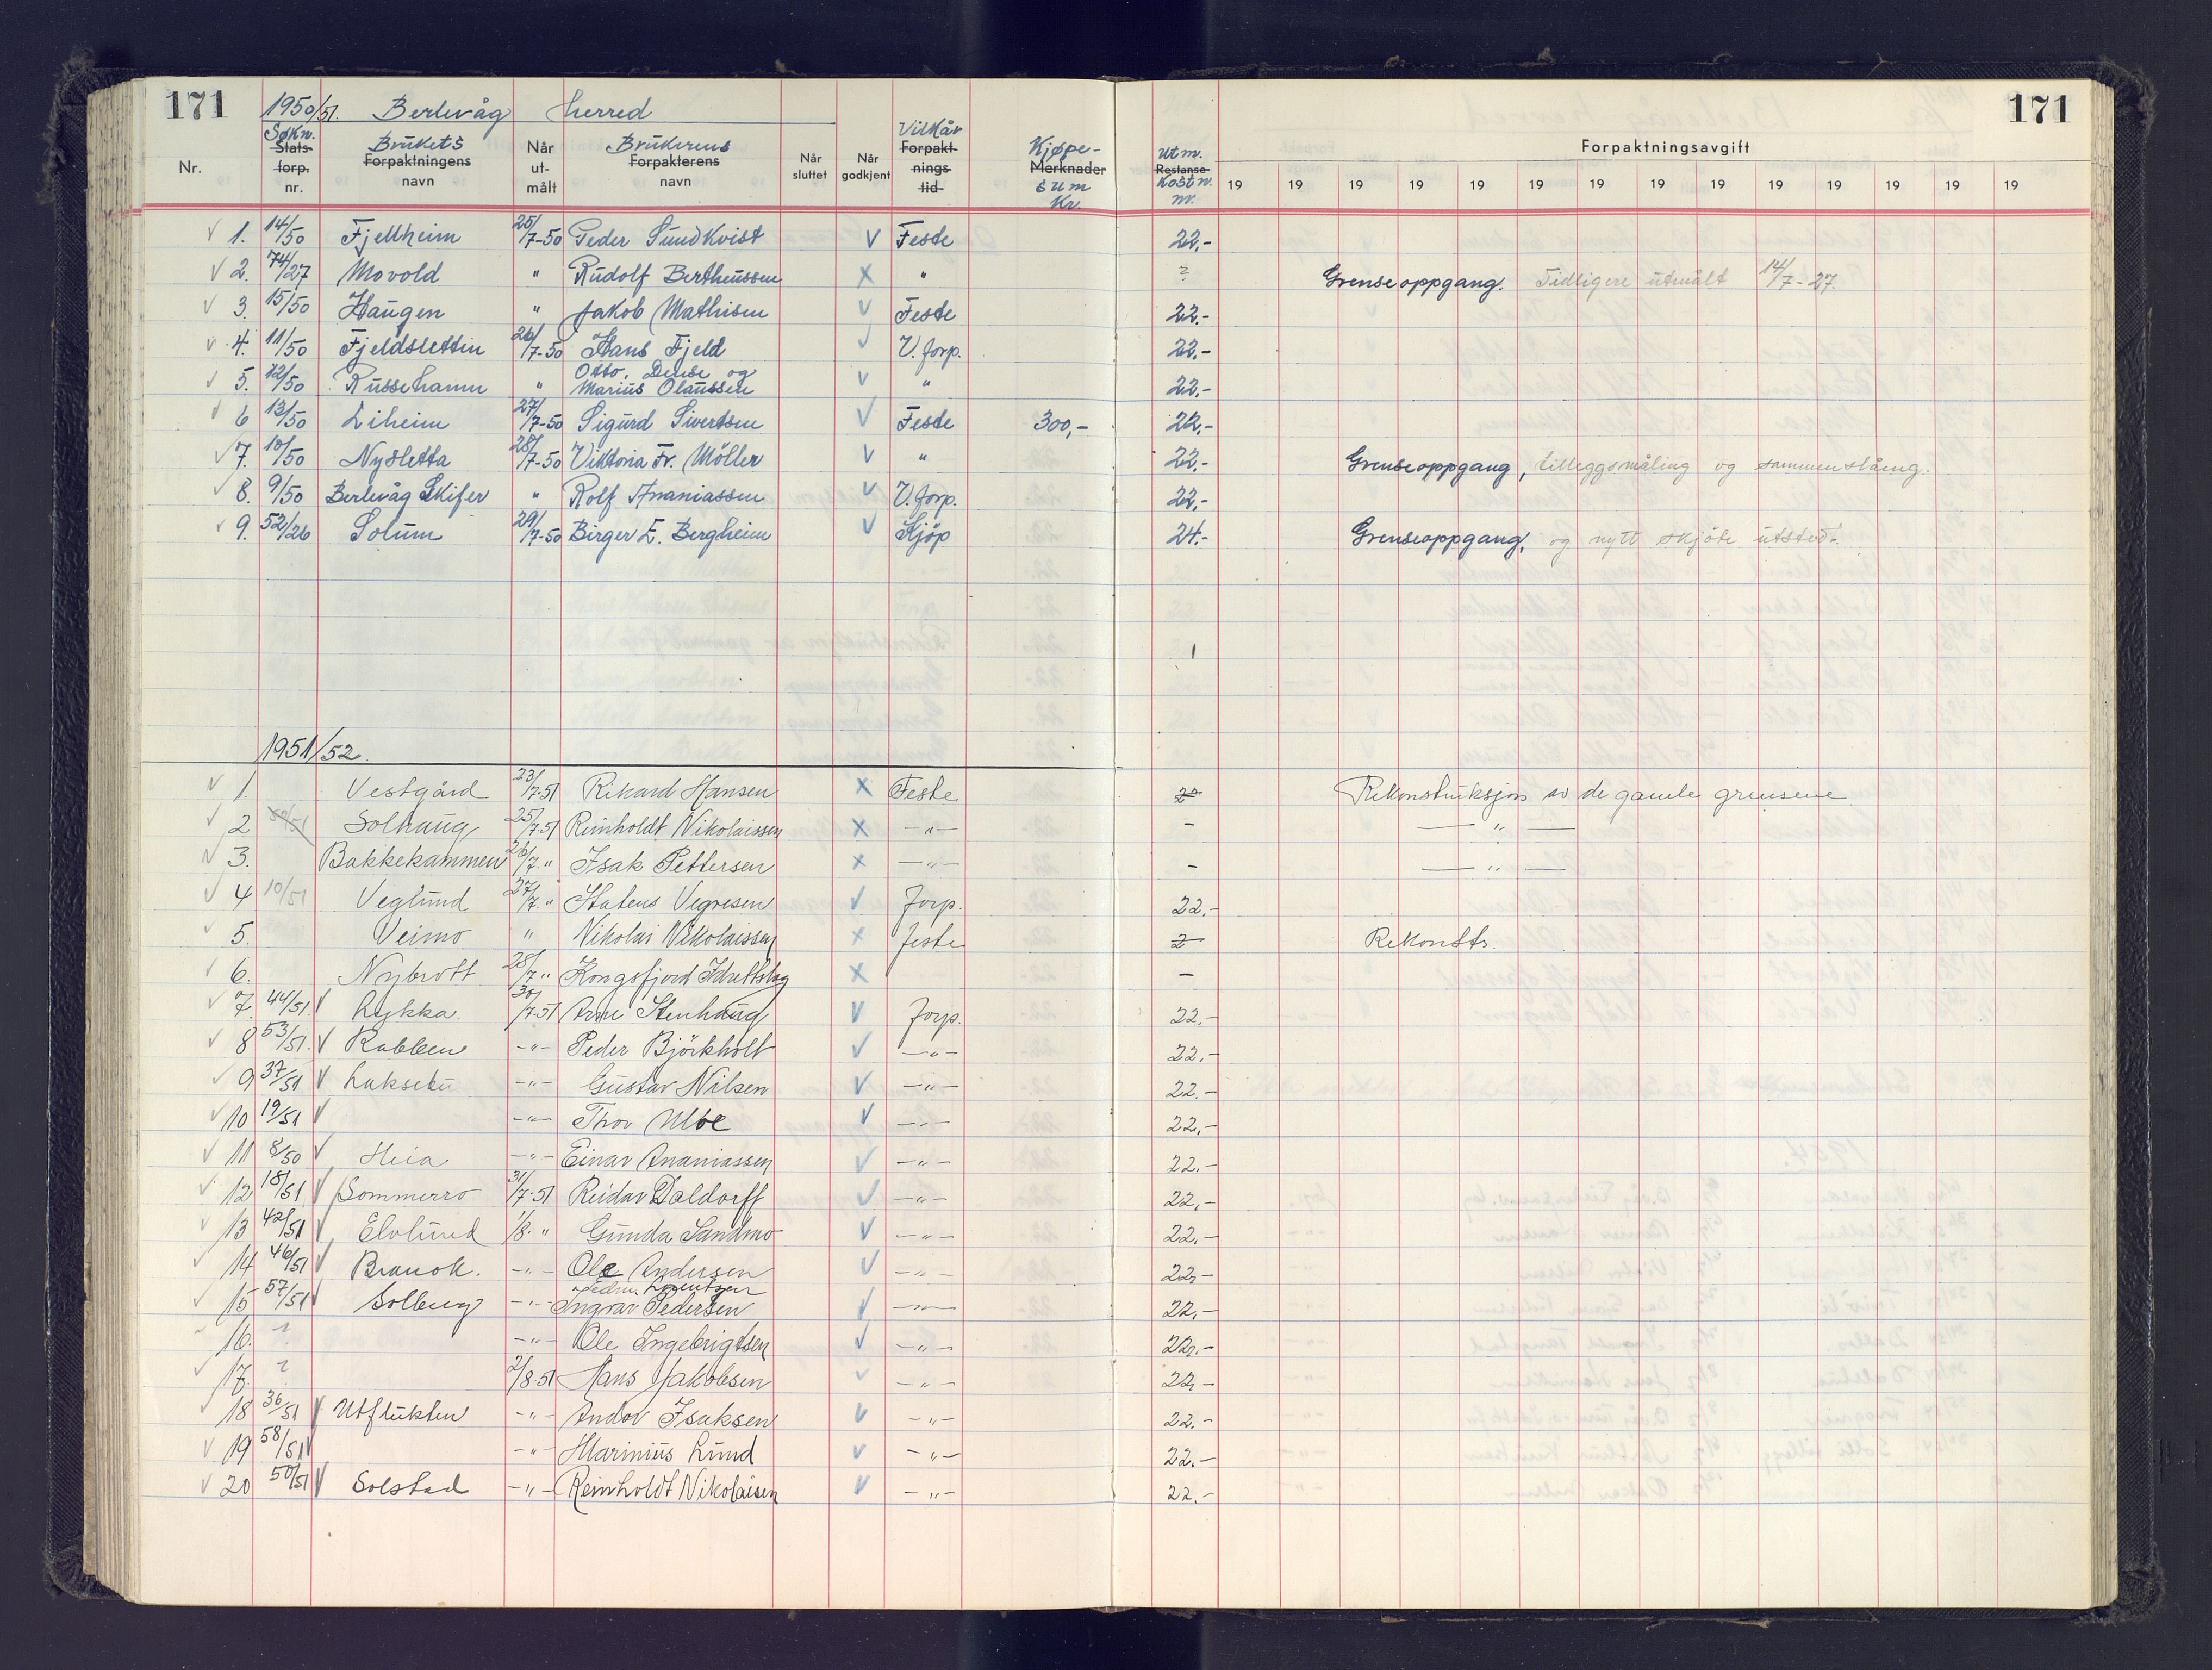 171 1950/51. Berlevåg herred 171
Nr. Søkn. Stats-forp. nr. Brukets Forpaktningens navn Når ut-målt Brukerens Forpakterens navn Når sluttet Når godkjent Vilkår Forpakt-nings-tid Kjøpe-Merknader sum Kr. Utm. Restanse Kostn. nr. Forpaktningsavgift
19 19 19 19 19 19 19 19 19 19 19 19 19 19
√ 1. 14/50 Fjellheim 25/7-50 Peder Sundkvist V Feste 22,-
√ 2. 74/27 Movold " Rudolf Bertheussen X " ? Grenseoppgang. Tidligere utmålt 14/7-27.
√ 3. 15/50 Haugen " Jakob Mathisen V Feste 22.-
√ 4. 11/50 Fjeldslettin 26/7-50 Hans Fjeld √ V. forp. 22,-
√ 5. 12/50 Russehamn " Otto, Dense og Marius Olaussen V " 22,-
√ 6 13/50 Liheim 27/7-50 Sigurd Sivertsen V Feste 300,- 22,-
√ 7. 10/50 Nysletta 28/7-50 Viktoria Fr. Möller V " 22,- Grenseoppgang, tilleggsmåling og sammenslåing.
√ 8. 9/50 Berlevåg Skifer " Rolf Ananiassen V V. forp. 22,-
√ 9. 52/26 Solum 29/7-50 Birger E. Bergheim V Kjöp 24.- Grenseoppgang, og nytt skjöte utstedt.
1951/52.
√ 1. Vestgård 23/7-51 Rikard Hansen X Feste Rekonstruksjon av de gamle grensene
√ 2 50/51 Solhaug 25/7-51 Reinholdt Nikolaissen X -"- - -"-
√ 3. Bakkekammen 26/7 " Isak Pettersen X -"- - -"-
√ 4 10/51 Veglund 27/7. " Statens Vegvesen √ Forp. 22,-
√ 5. Veimo " Nikolai Nikolaissen X feste 2 Rekonstr.
√ 6. Nybrott 28/7 " Kongsfjord Idrettslag X -
√ 7. 44/51. V Lykka 30/7-51 Arne Stenhaug V Forp. 22,-
√ 8 53/51. V Rabben -"- Peder Björkholt √ -"- 22,-
√ 9 37/51 V Laksebu -"- Gustav Nilsen V -"- 22.-
√ 10 19/51 V -"- Thor Moe V -"- 22,-
√ 11 8/50 V Heia -"- Einar Ananiassen V -"- 22.-
√ 12 18/51 V Sommerro 31/7-51 Reidar Daldorff V -"- 22,-
√ 13 42/51 V Elvlund 1/8. " Gunda Sandmo V -"- 22,-
√ 14 46/51 V Brauok. -"- Ole Andersen V -"- 22,-
√ 15 57/51 V Solberg -"- Ingvar Pedersen √ -"- 22,-
16. ? -"- Ole Ingebrigtsen √ -"- 22,-
√ 17. ? 2/8-51 Hans Jakobsen √ -"- 22,-
√ 18 36/51 V Utflukten -"- Andor Isaksen V -"- 22.-
√ 19 58/51 V -"- Marinius Lund V -"- 22.-
√ 20 50/51 V Solstad -"- Reinholdt Nikolaisen V -"- 22.-